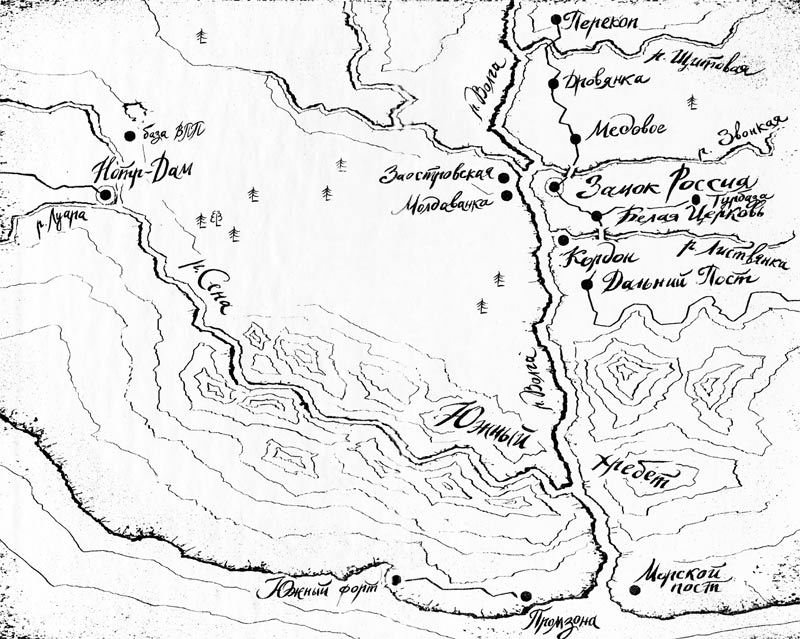 Перекоп
р. Щитовая
р. Волга
Дровянка
Медовое
р. Звонкая
база ВПП
Нотр-Дам
Заостровская
Молдаванка
Замок Россия
Турбаза
Белая Церковь
р. Луара
Кордон
р. Листвянка
Дальний Пост
р. Сена
р. Волга
Южный
Хребет
Южный форт
Морской
пост
Промзона